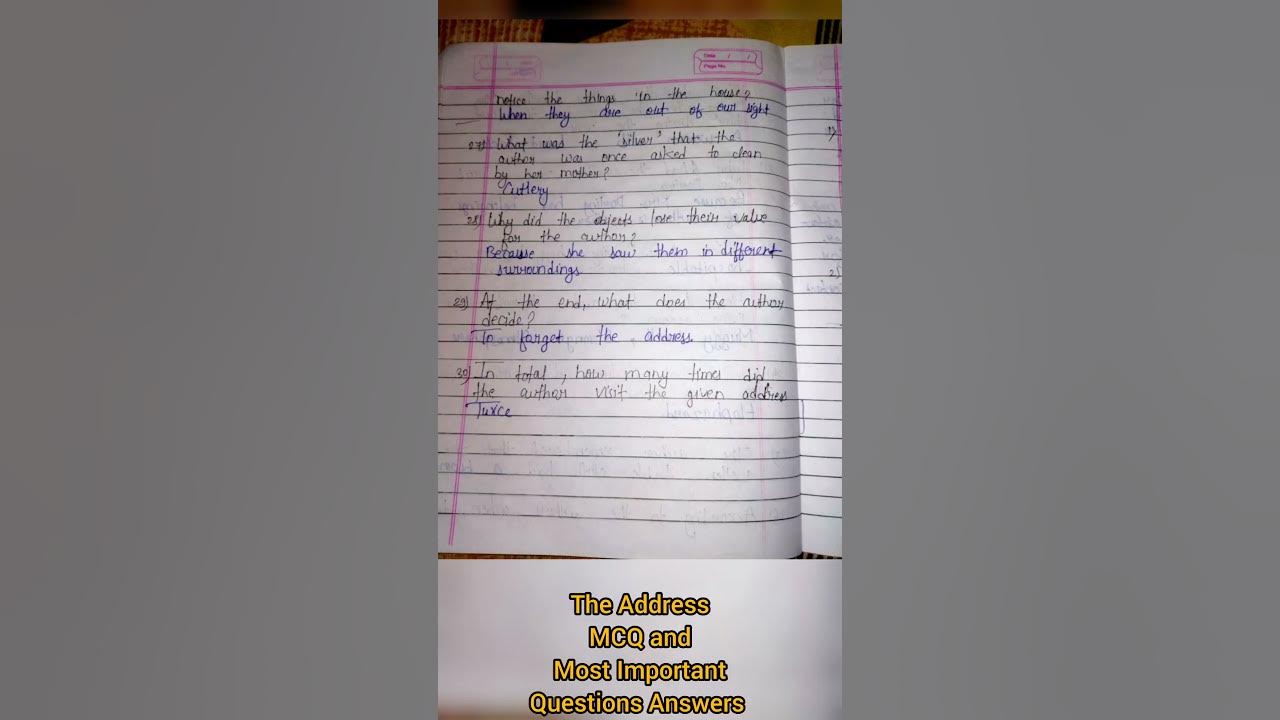 Date / /
Page No.
notice the things in the house?
When they are out of our sight
27) What was the 'silver' that the
author was once asked to clean
by her mother?
Cutlery
28) Why did the objects lose their value
for the author?
Because she saw them in different
surroundings
29) At the end, what does the author
decide?
To forget the address.
30) In total, how many times did
the author visit the given address
Twice
1)
2)
The Address
MCQ and
Most Important
Questions Answers